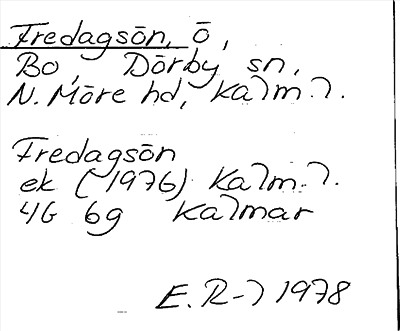 Fredagsön, ö,
Bo, Dörby sn,
N. Möre hd, Kalm. l.
Fredagsön
ek (1976) Kalm. l.
4G 6g Kalmar
E. R-l 1978